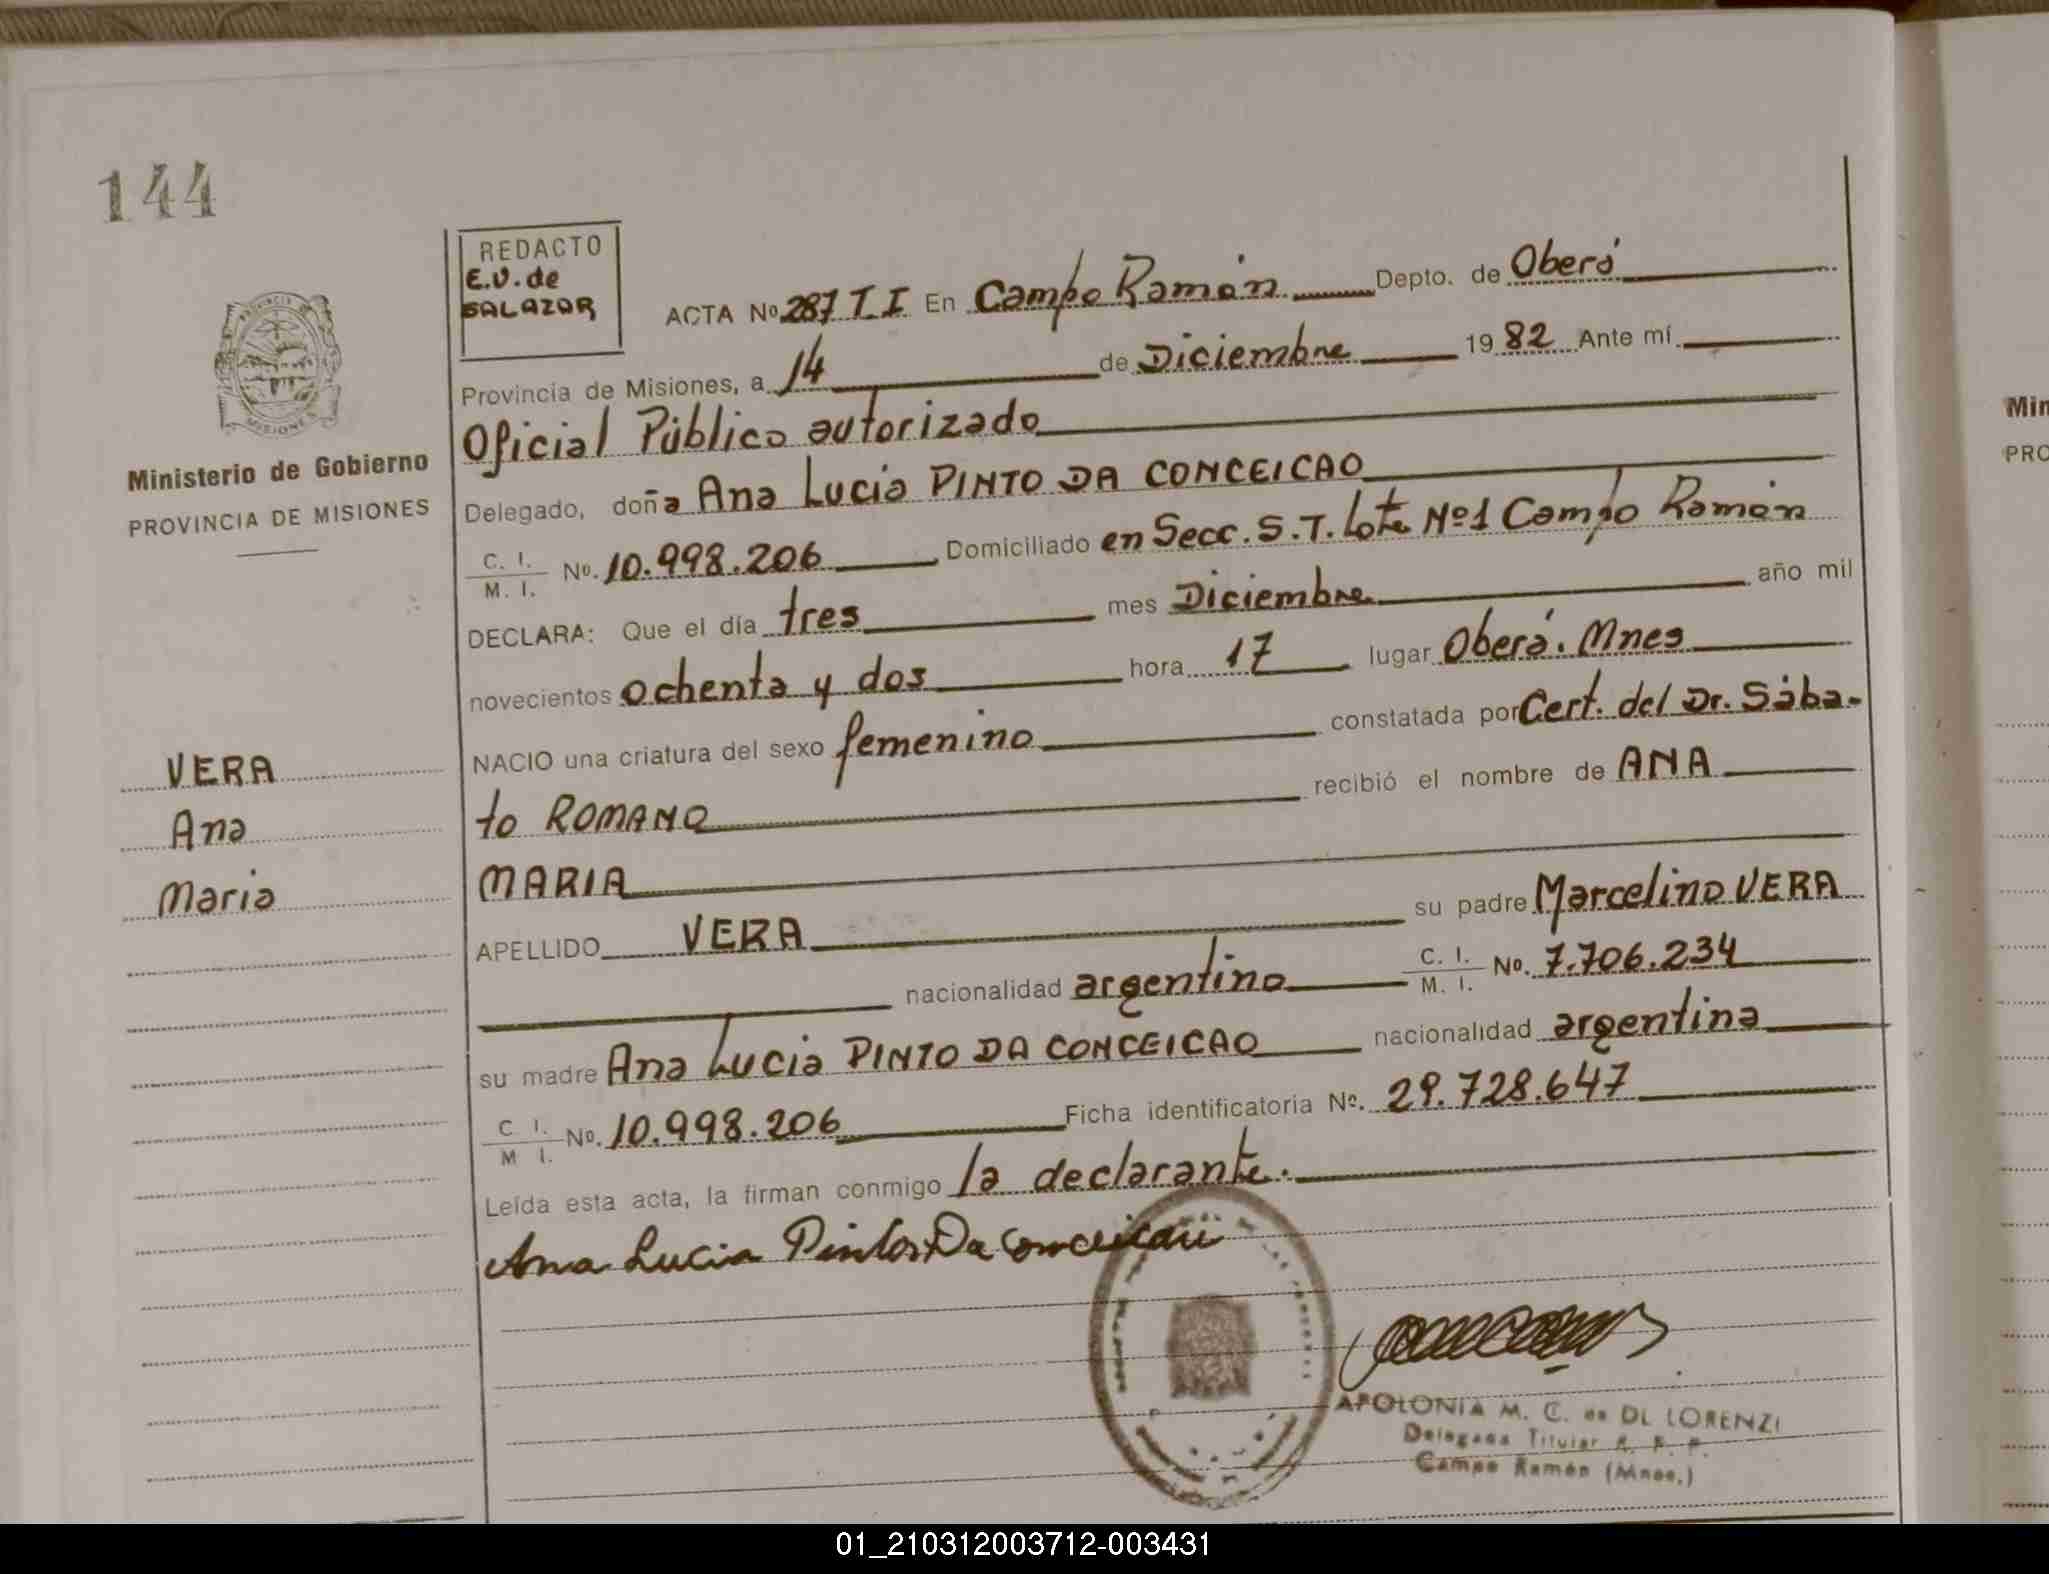 144
REDACTO
E.V. de
SALAZAR
ACTA Nº 287 T.I En Campo Ramón Depto. de Oberá
Provincia de Misiones, a 14 de Diciembre 1982 Ante mí
Oficial Público autorizado
Ministerio de Gobierno
PROVINCIA DE MISIONES
Delegado, doña Ana Lucia PINTO DA CONCEICAO
C. I. / M. I. Nº. 10.998.206 Domiciliado en Secc. S.T. Lote Nº1 Campo Ramón
DECLARA: Que el día tres mes Diciembre año mil
novecientos ochenta y dos hora 17 lugar Oberá. Mnes
NACIO una criatura del sexo femenino constatada por Cert. del Dr. Sába-
to ROMANO recibió el nombre de ANA
MARIA
VERA
Ana
Maria
APELLIDO VERA su padre Marcelino VERA
nacionalidad argentino C. I. / M. I. Nº. 7.706.234
su madre Ana Lucia PINTO DA CONCEICAO nacionalidad argentina
C I. / M I. Nº. 10.998.206 Ficha identificatoria Nº. 29.728.647
Leída esta acta, la firman conmigo la declarante.
Ana Lucia Da
APOLONIA M. C. de DI LORENZI
Delegada Titular R. P. P.
Campo Ramón (Mnes.)
Min
PRO
01_210312003712-003431